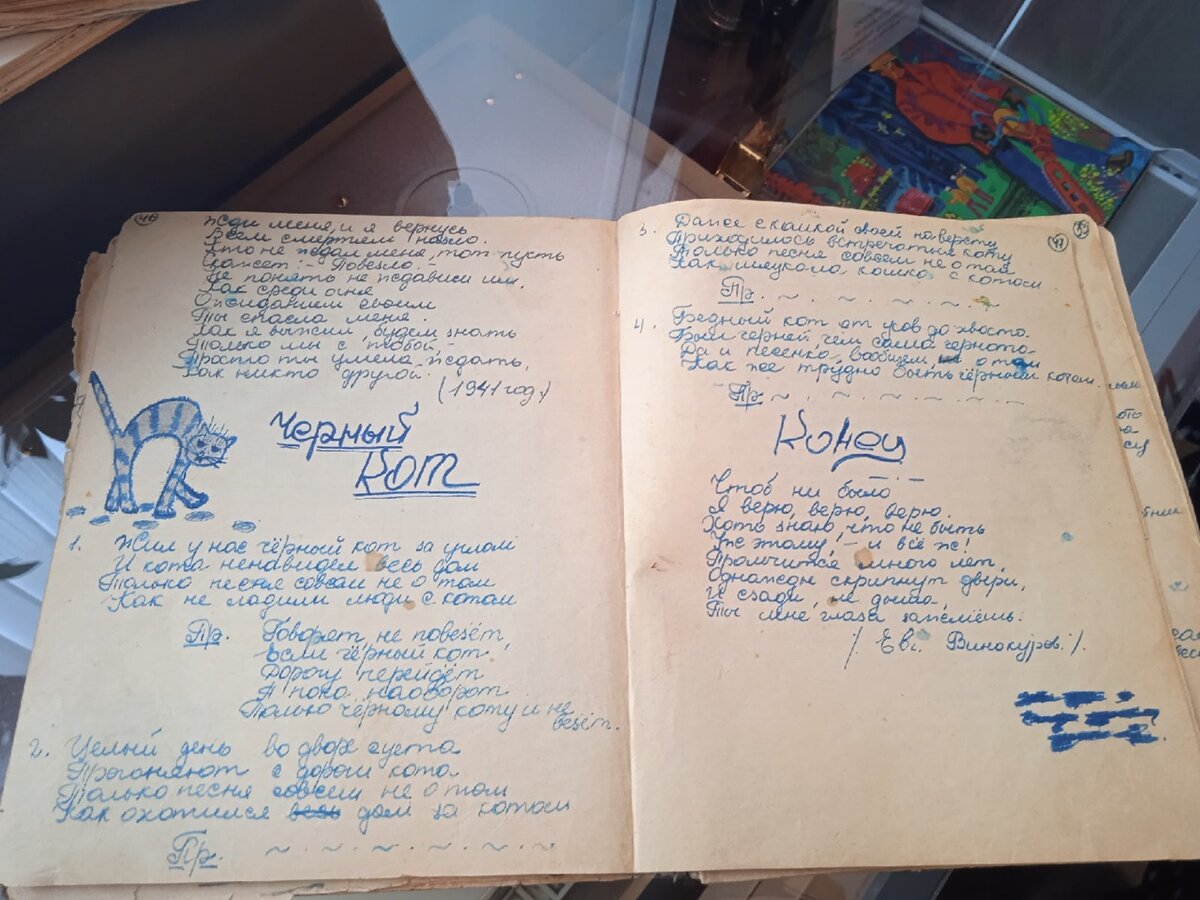 46
Жди меня, и я вернусь
Всем смертям назло.
Кто не ждал меня, тот пусть
Скажет: Повезло.
Не понять не ждавшим им,
Как среди огня
Ожиданием своим
Ты спасла меня.
Как я выжил, будем знать
Только мы с тобой –
Просто ты умела ждать,
Как никто другой.
(1941 год.)
Черный
Кот
1. Жил у нас чёрный кот за углом
И кота ненавидел весь дом
Только песня совсем не о том
Как не ладили люди с котом
Пр. Говорят, не повезёт,
Если чёрный кот
Дорогу перейдёт
А пока наоборот
Только чёрному коту и не
везёт.
2. Целый день во дворе суета
Прогоняют с дороги кота
Только песня совсем не о том
Как охотился весь дом за котом
Пр. ~ ~ ~ ~ ~ ~ ~
47
3. Даже с кошкой своей за версту
Приходилось встречаться коту
Только песня совсем не о том
Как мяукала кошка с котом
Пр. ~ ~ ~ ~ ~ ~
4. Бедный кот от усов до хвоста.
Был черней, чем сама чернота
Да и песенка, вообщем, о том
Как же трудно быть чёрным котом.
Пр. ~ ~ ~ ~ ~ ~ ~
Конец
Чтоб ни было –
Я верю, верю, верю.
Хоть знаю, что не быть
Уж этому, – и всё ж!
Промчится много лет,
Однажды скрипнут двери,
И сзади, не дыша,
Ты мне глаза зажмёшь.
/ Евг. Винокуров /.